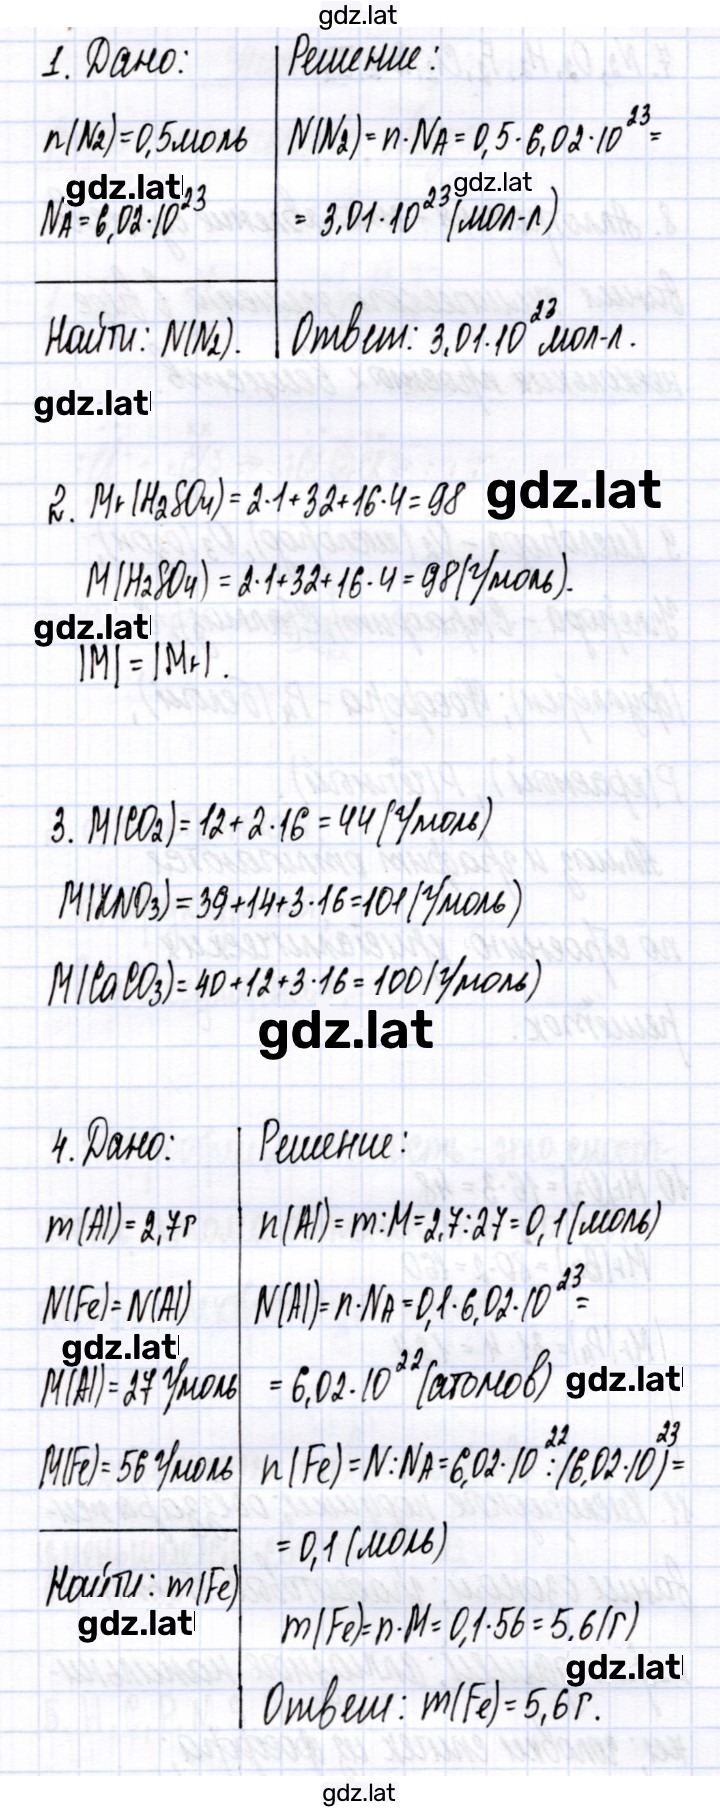 gdz.lat
1. Дано:
n(N₂)=0,5моль
gdz.lat
NA=6,02·10²³
Найти: N(N₂).
gdz.lat
Решение:
N(N₂)=n·NA=0,5·6,02·10²³=
gdz.lat
=3,01·10²³(мол-л)
Ответ: 3,01·10²³мол-л.
2. Mr(H₂SO₄)=2·1+32+16·4=98
gdz.lat
M(H₂SO₄)=2·1+32+16·4=98(г/моль).
gdz.lat
|M|=|Mr|.
3. M(CO₂)=12+2·16=44(г/моль)
M(KNO₃)=39+14+3·16=101(г/моль)
M(CaCO₃)=40+12+3·16=100(г/моль)
gdz.lat
4. Дано:
m(Al)=2,7г
N(Fe)=N(Al)
gdz.lat
M(Al)=27 г/моль
M(Fe)=56 г/моль
Найти: m(Fe)
gdz.lat
Решение:
n(Al)=m:M=2,7:27=0,1(моль)
N(Al)=n·NA=0,1·6,02·10²³=
=6,02·10²²(атомов)
gdz.lat
n(Fe)=N:NA=6,02·10²²:(6,02·10²³)=
=0,1(моль)
m(Fe)=n·M=0,1·56=5,6(г)
gdz.lat
Ответ: m(Fe)=5,6г.
gdz.lat